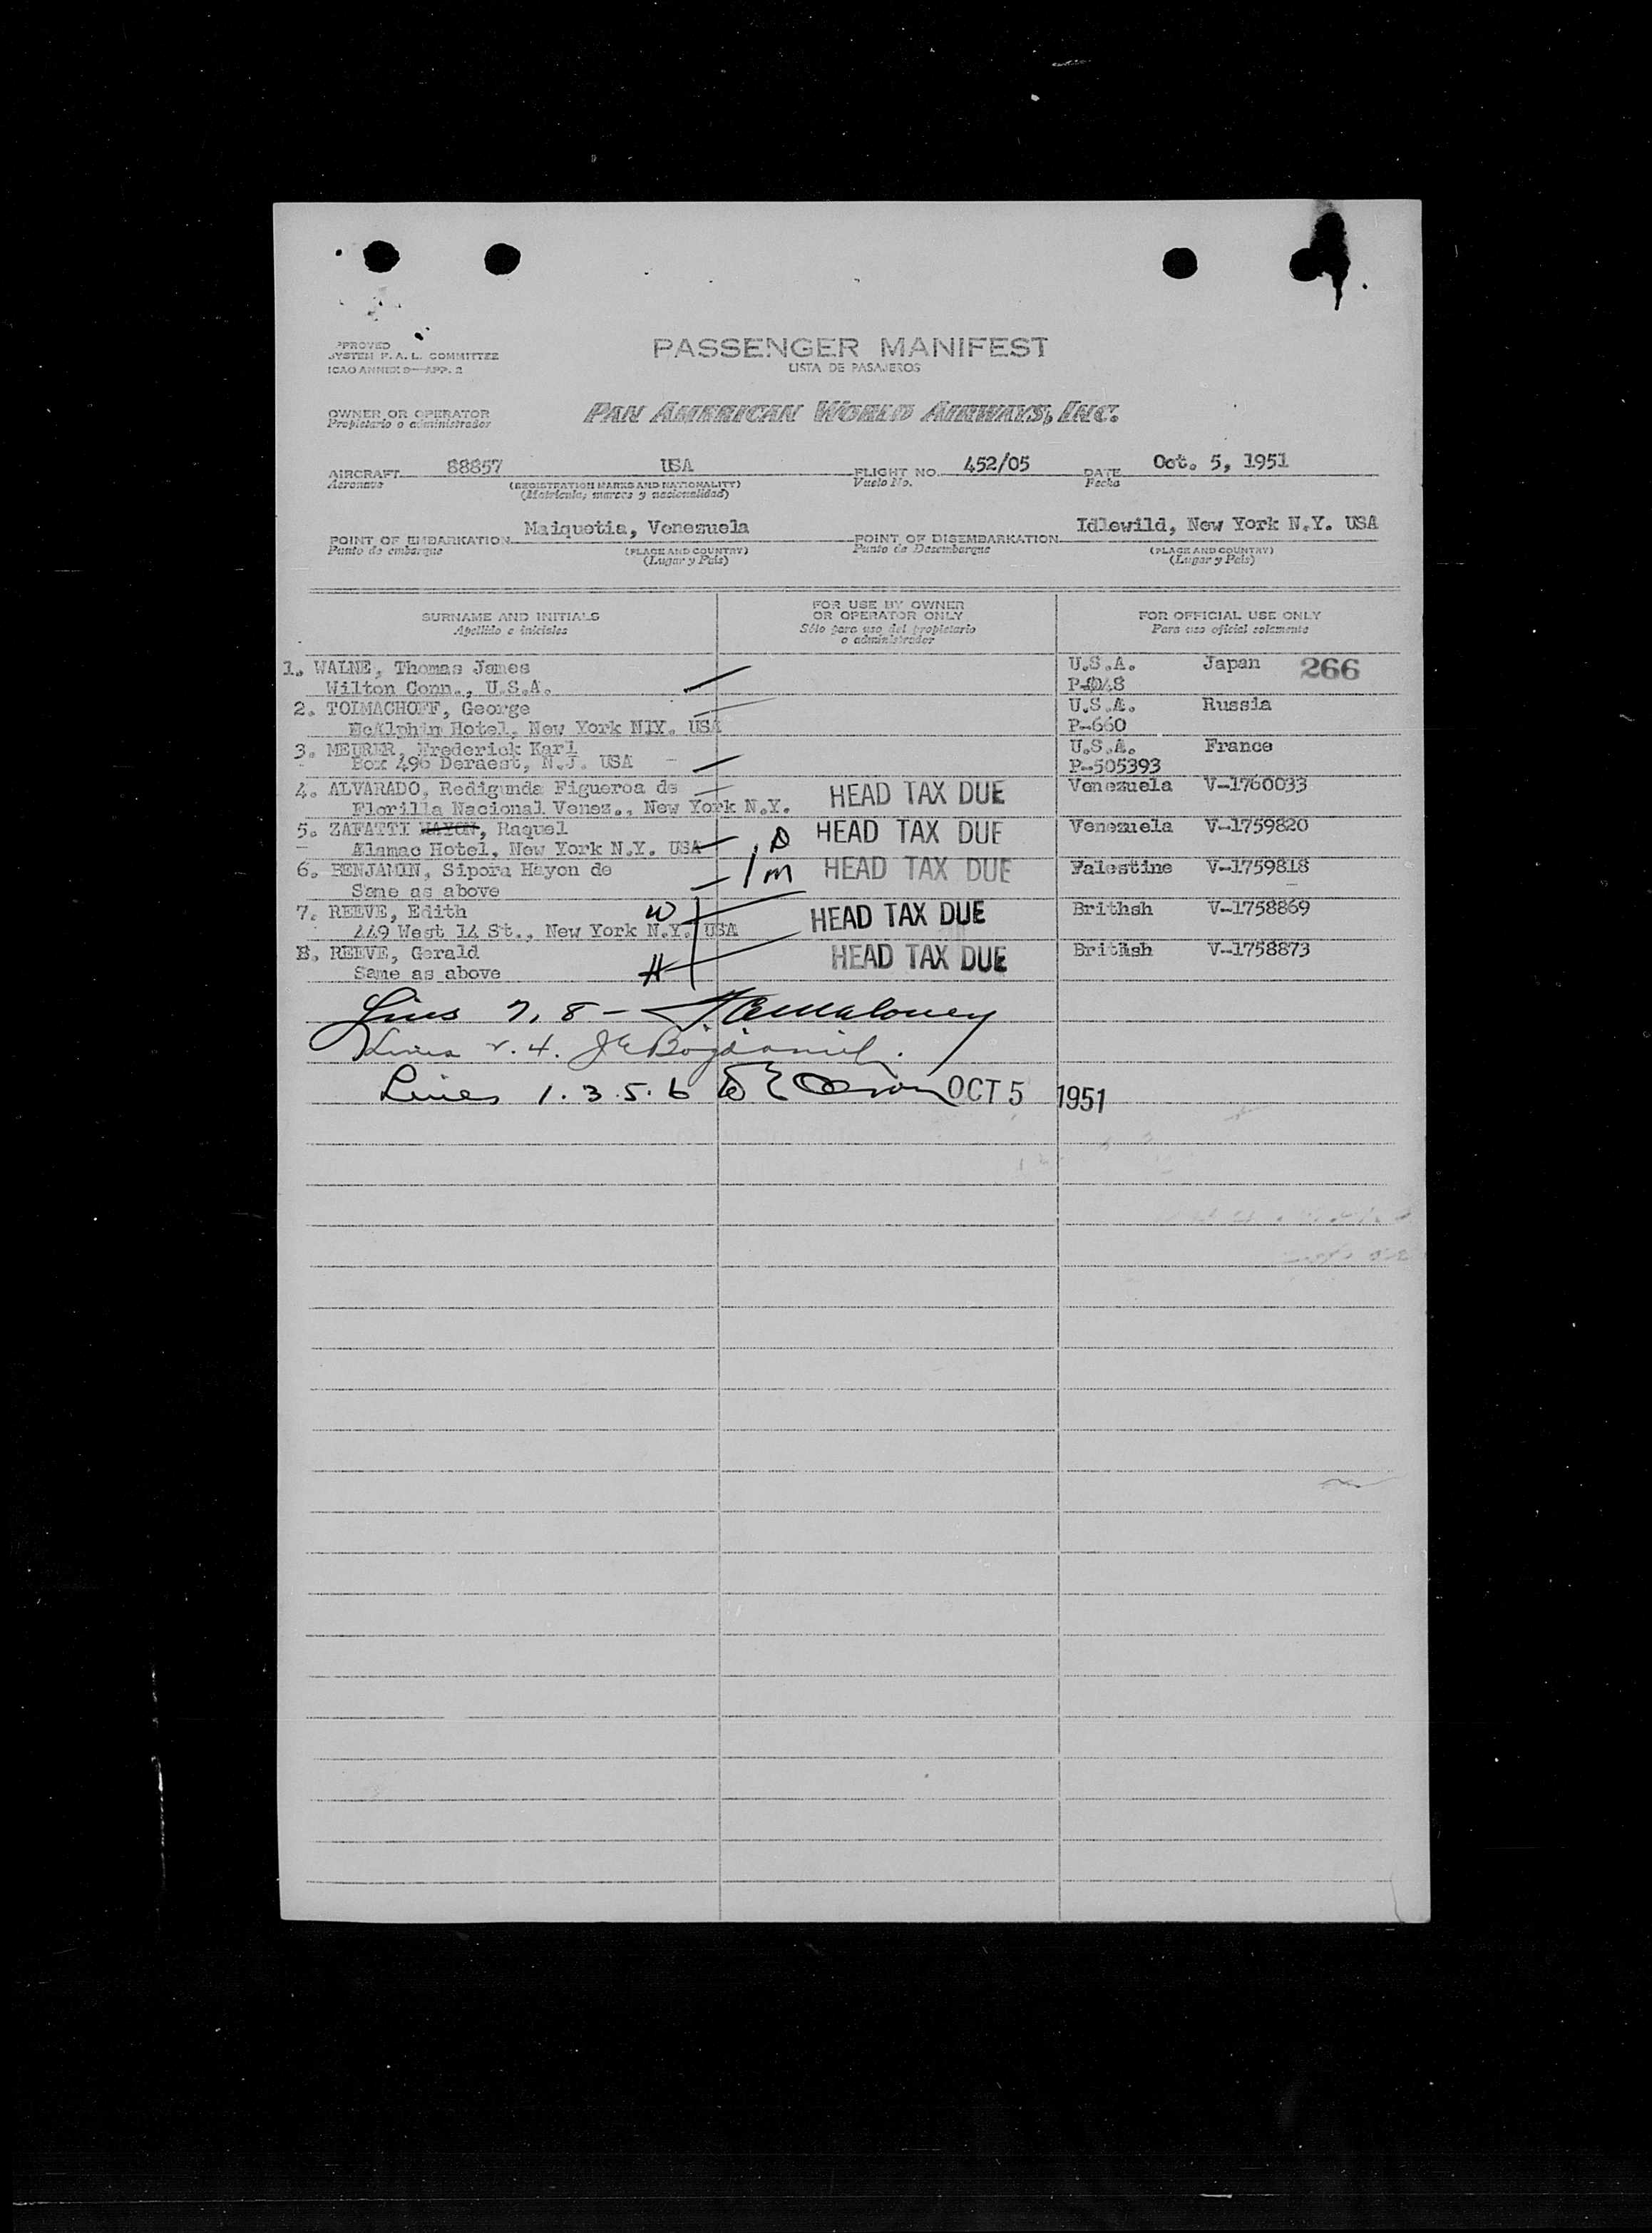 PASSENGER MANIFEST
LISTA DE PASAJEROS
PPROVED
SYSTEM F. A. L. COMMITTEE
ICAO ANNEX 9—APP. 2
OWNER OR OPERATOR
Propietario o administrador
PAN AMERICAN WORLD AIRWAYS, INC.
AIRCRAFT 88857 USA FLIGHT NO. 452/05 DATE Oct. 5, 1951
Aeronave (REGISTRATION MARKS AND NATIONALITY) Vuelo No. Fecha
(Matrícula, marcas y nacionalidad)
POINT OF EMBARKATION Maiquetia, Venezuela POINT OF DISEMBARKATION Idlewild, New York N.Y. USA
Punto de embarque (PLACE AND COUNTRY) Punto de Desembarque (PLACE AND COUNTRY)
(Lugar y País) (Lugar y País)
SURNAME AND INITIALS FOR USE BY OWNER OR OPERATOR ONLY FOR OFFICIAL USE ONLY
Apellido e iniciales Sólo para uso del propietario o administrador Para uso oficial solamente
1. WALNE, Thomas James U.S.A. Japan 266
Wilton Conn., U.S.A.
2. TOLMACHOFF, George U.S.A. Russia
McAlphin Hotel, New York NIY. USA P-660
3. MEURER, Frederick Karl U.S.A. France
Box 496 Deraest, N.J. USA P-505393
4. ALVARADO, Redigunda Figueroa de HEAD TAX DUE Venezuela V-1760033
Florilla Nacional Venez., New York N.Y.
5. ZAFATTI HAYON, Raquel D HEAD TAX DUE Venezuela V-1759820
Alamac Hotel, New York N.Y. USA
6. BENJAMIN, Sipora Hayon de M HEAD TAX DUE Palestine V-1759818
Same as above
7. REEVE, Edith W HEAD TAX DUE Brithsh V-1758869
449 West 14 St., New York N.Y. USA
8. REEVE, Gerald H HEAD TAX DUE British V-1758873
Same as above
Lines 7, 8 -
Lines 2. 4.
Lines 1. 3. 5. 6 OCT 5 1951